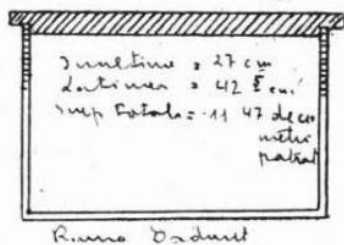 Inaltime = 27 cm
Latimea = 42 5 cm
sup totala = 11 47 deci
metri
patrat
Rama